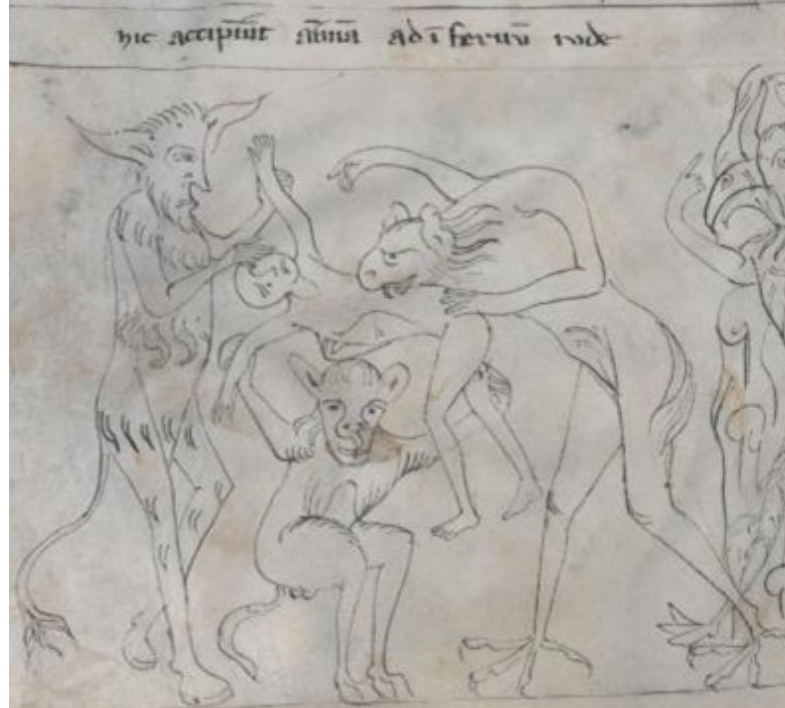 hic accipiūt aīmā ad īfernū iude